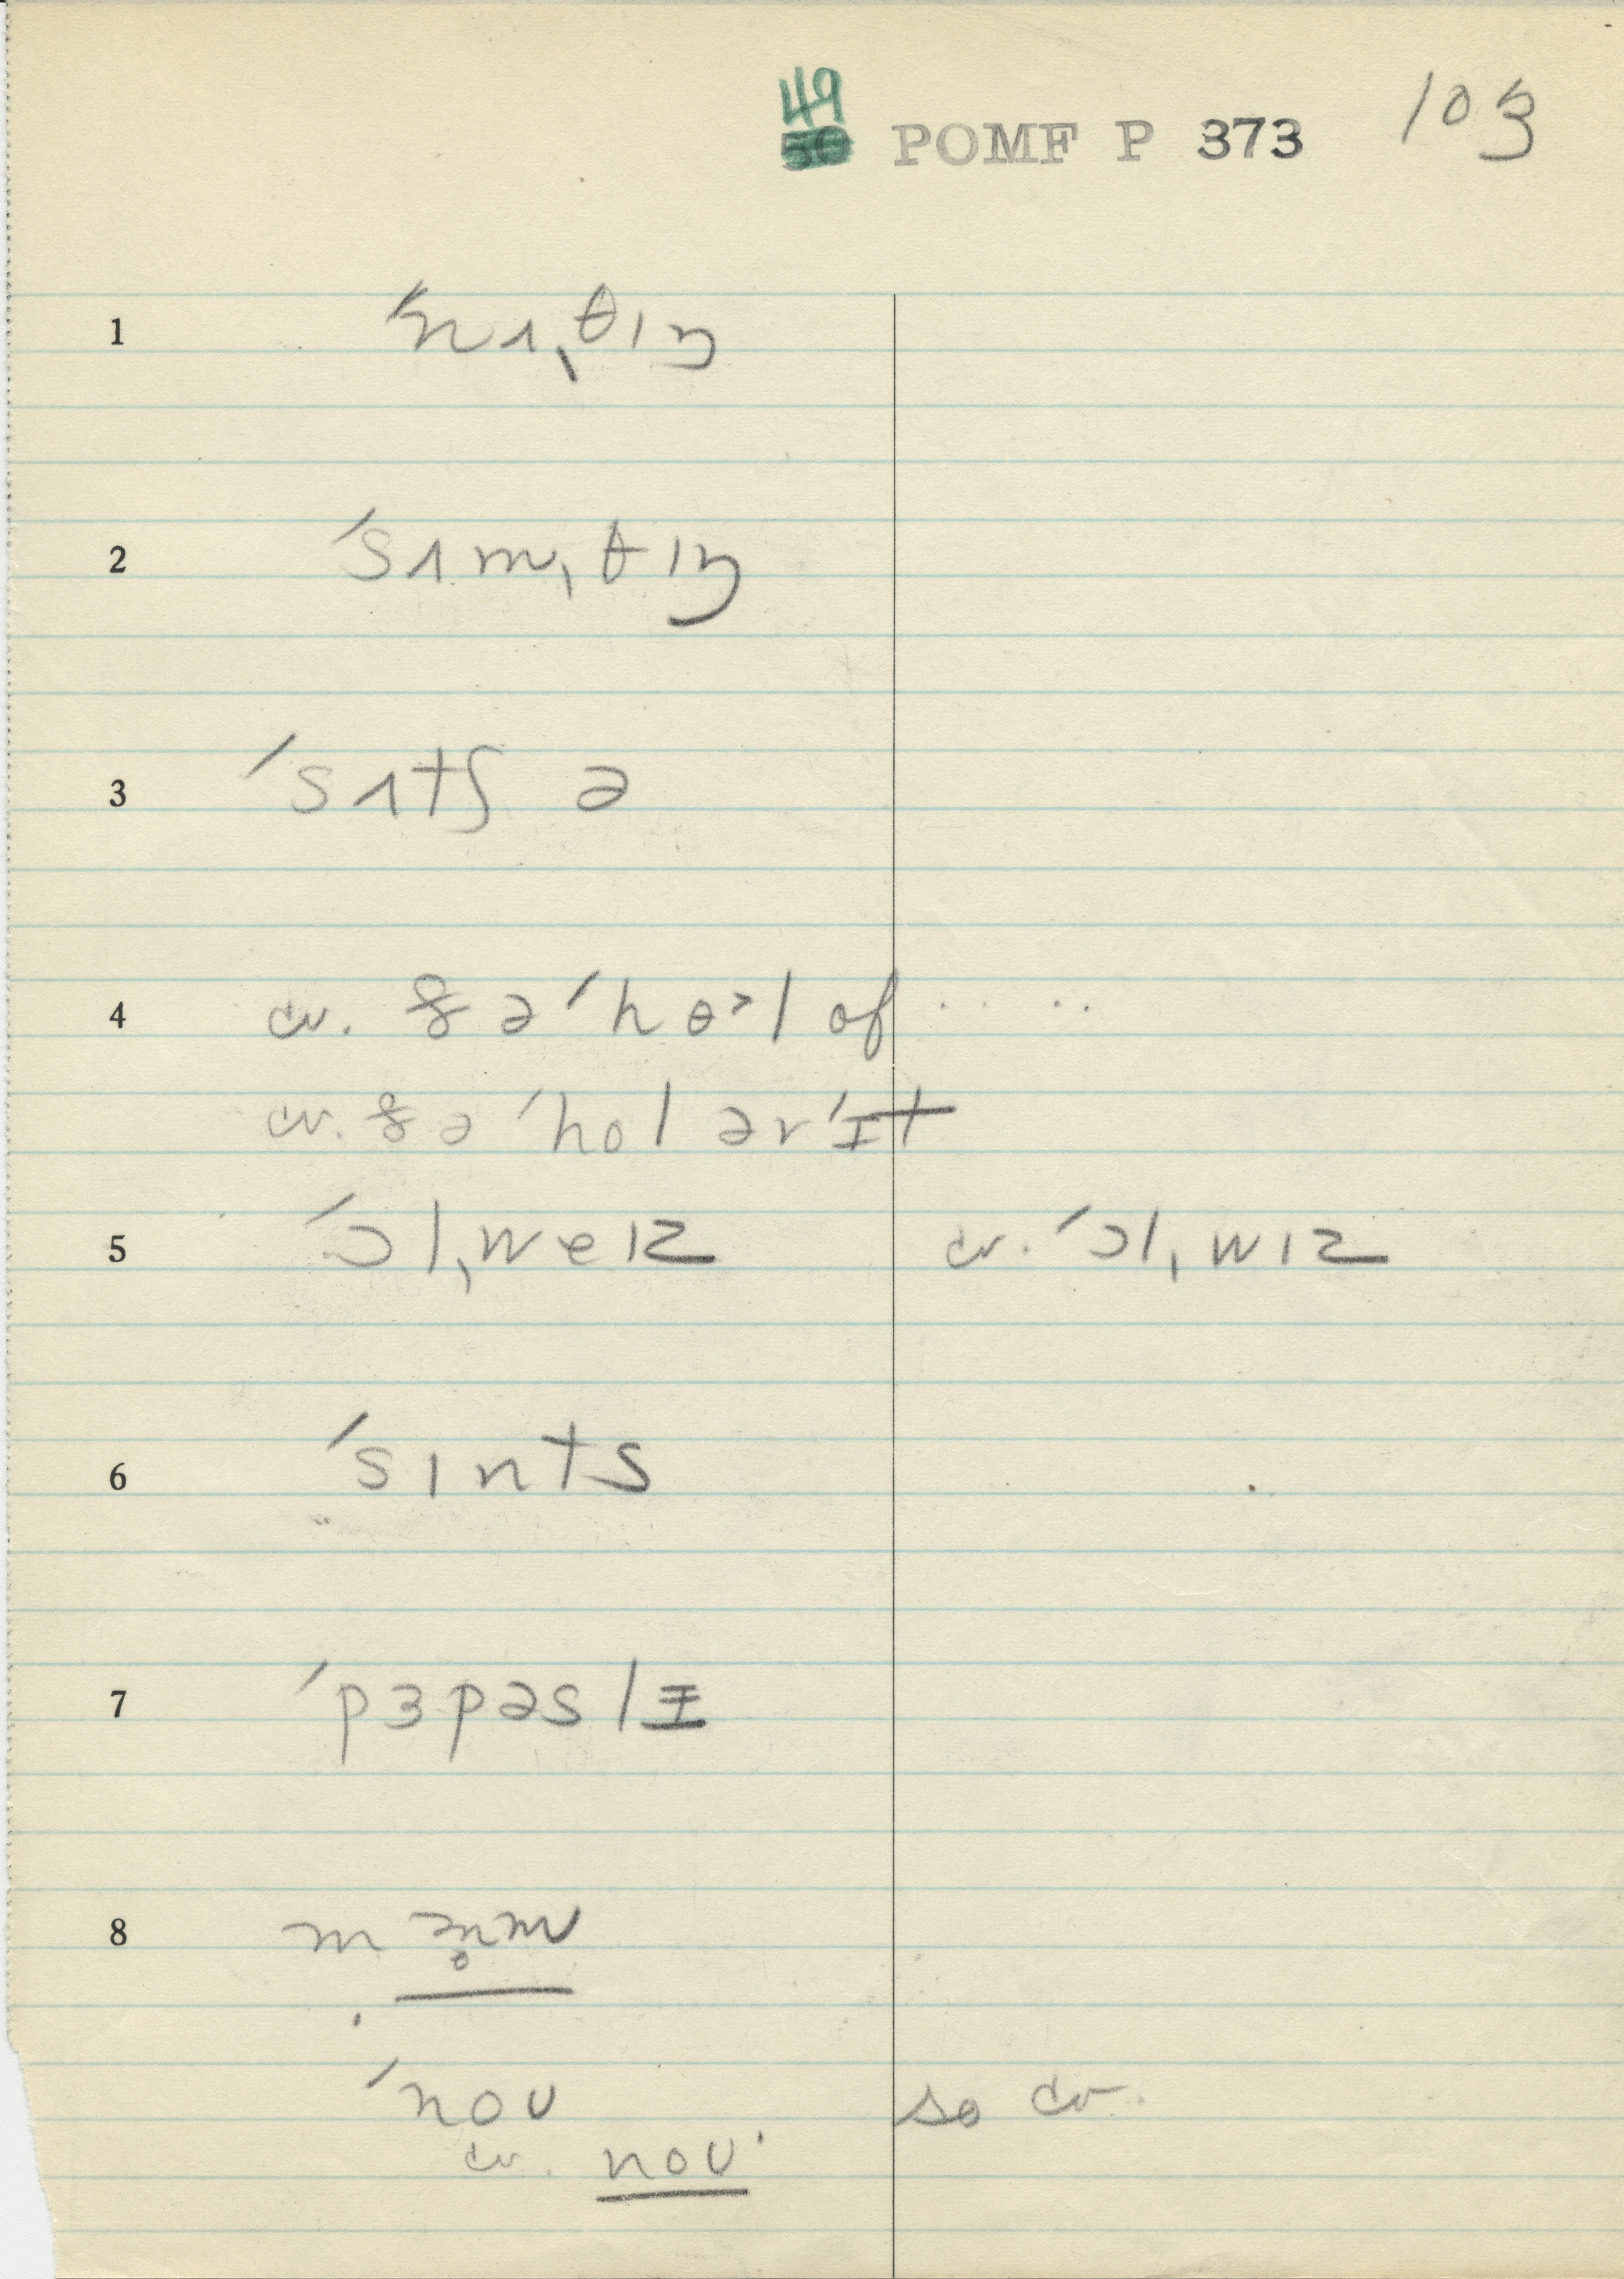 49
50 POMF P 373 103
1 ˈnʌˌθɪŋ
2 ˈsʌmˌθɪŋ
3 ˈsʌtʃ ə
4 cv. ðə ˈhɵ˃l of . . .
cv. ðə ˈhol əvˈɪt
5 ˈɔlˌweɪz cv. ˈɔlˌwɪz
6 ˈsɪnts
7 ˈpɜpəslɪ
8 m
ˈnoʊ so cv.
cv. noʊ.